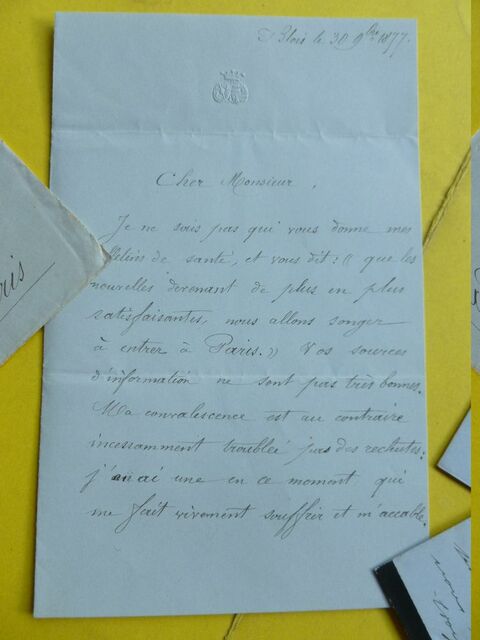 Blois le 30 9bre 1877.
Cher Monsieur,
Je ne sais pas qui vous donne mes
bulletins de santé, et vous dit: « que les
nouvelles devenant de plus en plus
satisfaisantes, nous allons songer
à entrer à Paris. » Vos sources
d'information ne sont pas très bonnes.
Ma convalescence est au contraire
incessamment troublée par des rechutes:
j'en ai une en ce moment, qui
me fait vivement souffrir et m'accable.